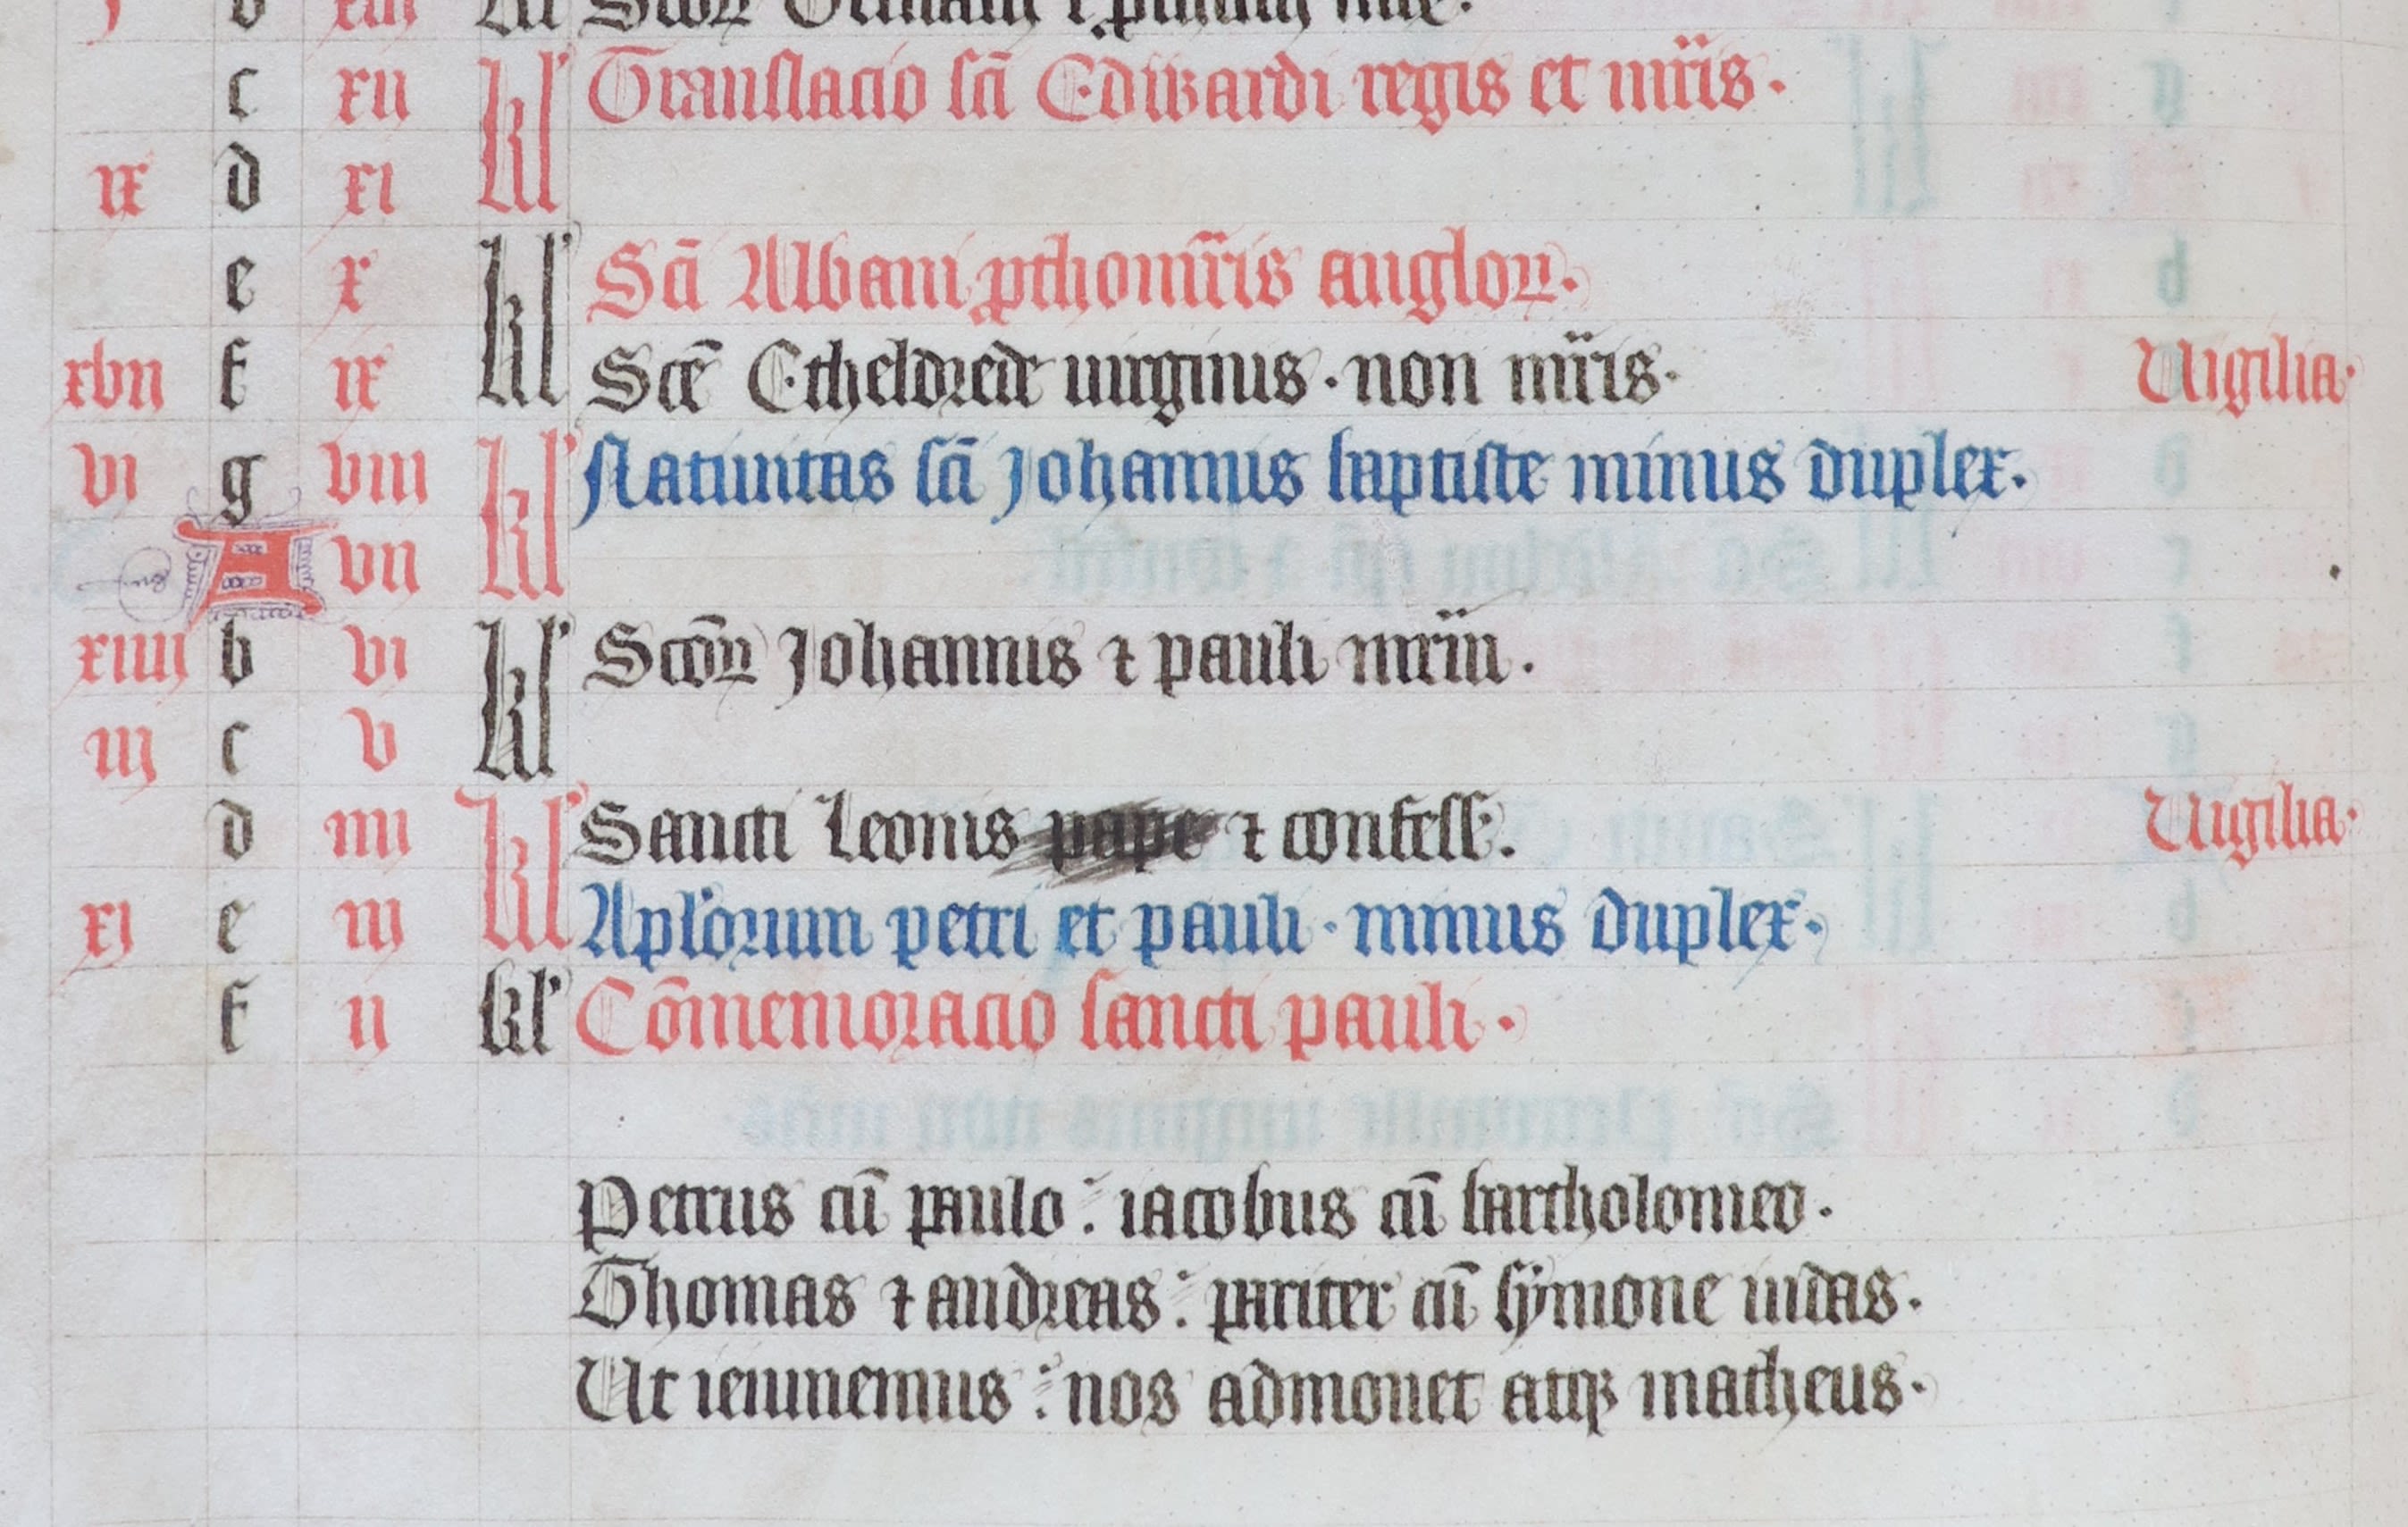 b xiii kl
c xii kl Translacio sci Edwardi regis et mris.
ix d xi
e x kl Sci Albani pthomris anglor.
xvii f ix Sce Etheldrede uirginis. non mris. Uigilia.
vi g viii kl Natiuitas sci Johannis baptiste minus duplex.
A vii
xiiii b vi kl Scor Johannis ⁊ pauli mrm.
iii c v
d iiii kl Sancti Leonis pape ⁊ confess. Uigilia.
xi e iii Aplorum petri et pauli. minus duplex.
f ii kl Comemoracio sancti pauli.
Petrus cū paulo: iacobus cū bartholomeo.
Thomas ⁊ andreas: pariter cū symone iudas.
Ut ieiunemus: nos admonet atqꝫ matheus.